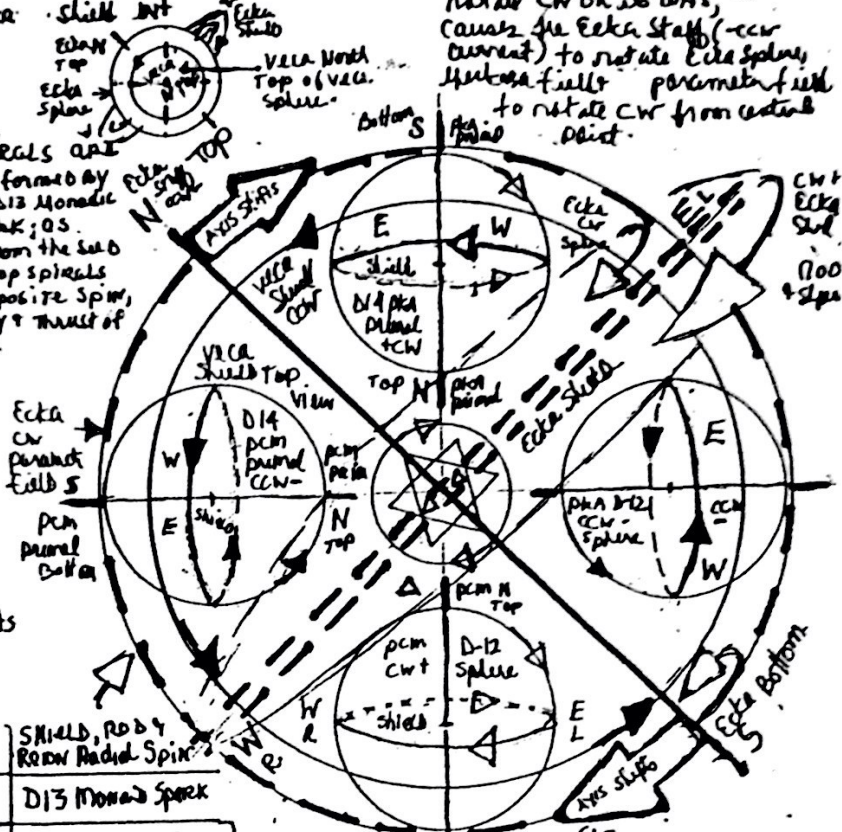 Shield Int
Ecka
Shield
Ecka N
Top
Ecka
Sphere
Veca North
Top of Veca
Sphere.
rotate CW on its axis,
causes the Ecka Staff (-ccw
current) to rotate Ecka Sphere,
field & parameter field
to rotate CW from central
point.
formed by
D13 Monadic
; as
from the seed
op spirals
posite spin,
& thrust of
TOP
Ecka
Staff
ccw
N
Axis Shifts
Bottom
S
pkA
primal
E
W
Shield
D14 pkA
primal
+CW
Top N
pkA
primal
Ecka
CW
Sphere
E
L
CW+
Ecka
Shld
Rod
Veca
Shield
CCW
Veca
Shield Top
View
Ecka Shield
Ecka
CW
paramet
field S
pcm
primal
Bottom
W
E
Shield
D14
pcm
primal
CCW-
pcm
prim
N
Top
pkA D-12
CCW-
Sphere
E
CCW
-
W
pcm N
Top
pcm
CW+
D-12
Sphere
W
R
Shield
E
L
W
R
Ecka Bottom
S
Axis Shifts
SHIELD, ROD &
Radial Spin
D13 Monad Spark